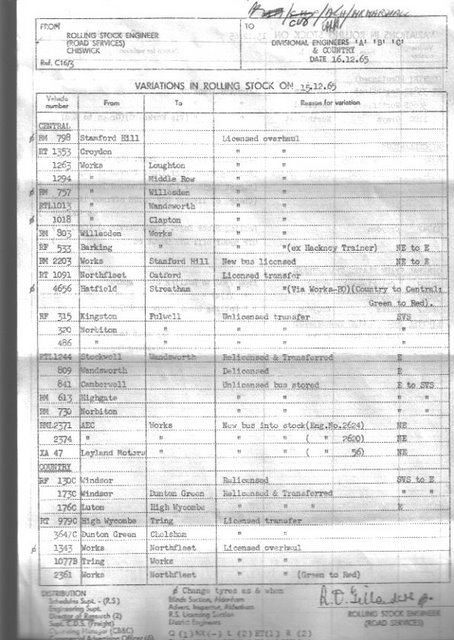 FROM
ROLLING STOCK ENGINEER
(ROAD SERVICES)
CHISWICK
Ref. C16/3
TO
DIVISIONAL ENGINEERS 'A' 'B' 'C'
& COUNTRY
DATE 16.12.65
VARIATIONS IN ROLLING STOCK ON 15.12.65
Vehicle number From To Reason for variation
CENTRAL
ø RM 798 Stamford Hill Licensed overhaul
RT 1353 Croydon " "
1263 Works Loughton " "
1294 " Middle Row " "
ø RM 757 " Willesden " "
RTL1013 " Wandsworth " "
ø 1018 " Clapton " "
RM 803 Willesden Works " "
RF 533 Barking " " "(ex Hackney Trainer) NE to E
RM 2203 Works Stamford Hill New bus licensed NE to E
RT 1091 Northfleet Catford Licensed transfer
ø 4656 Hatfield Streatham " "(Via Works-BO)(Country to Central;
Green to Red).
RF 315 Kingston Fulwell Unlicensed transfer SVS
320 Norbiton " " "
486 " " " "
RTL1244 Stockwell Wandsworth Relicensed & Transferred E
809 Wandsworth Delicensed E
841 Camberwell Unlicensed bus stored E to SVS
RM 613 Highgate " " " " "
RM 730 Norbiton " " " " "
RML2371 AEC Works New bus into stock(Eng.No.2624) NE
2374 " " " " ( " 2620) NE
XA 47 Leyland Motors " " " ( " 56) NE
COUNTRY
RF 130C Windsor Relicensed SVS to E
173C Windsor Dunton Green Relicensed & Transferred " "
176C Luton High Wycombe " " " E
RT 979C High Wycombe Tring Licensed transfer
3647C Dunton Green Chelsham " "
ø 1343 Works Northfleet Licensed overhaul
1077B Tring Works " "
2361 Works Northfleet " " (Green to Red)
DISTRIBUTION
Schedules Supt. - (R.S)
Engineering Supt.
Director of Research (2)
Supt. C.D.S. (Freight)
Operating Manager (CB&C)
ø Change tyres as & when
Blinds Section, Aldenham
Advert. Inspector, Aldenham
R.S. Licensing Section
District Engineers
ROLLING STOCK ENGINEER
(ROAD SERVICES)